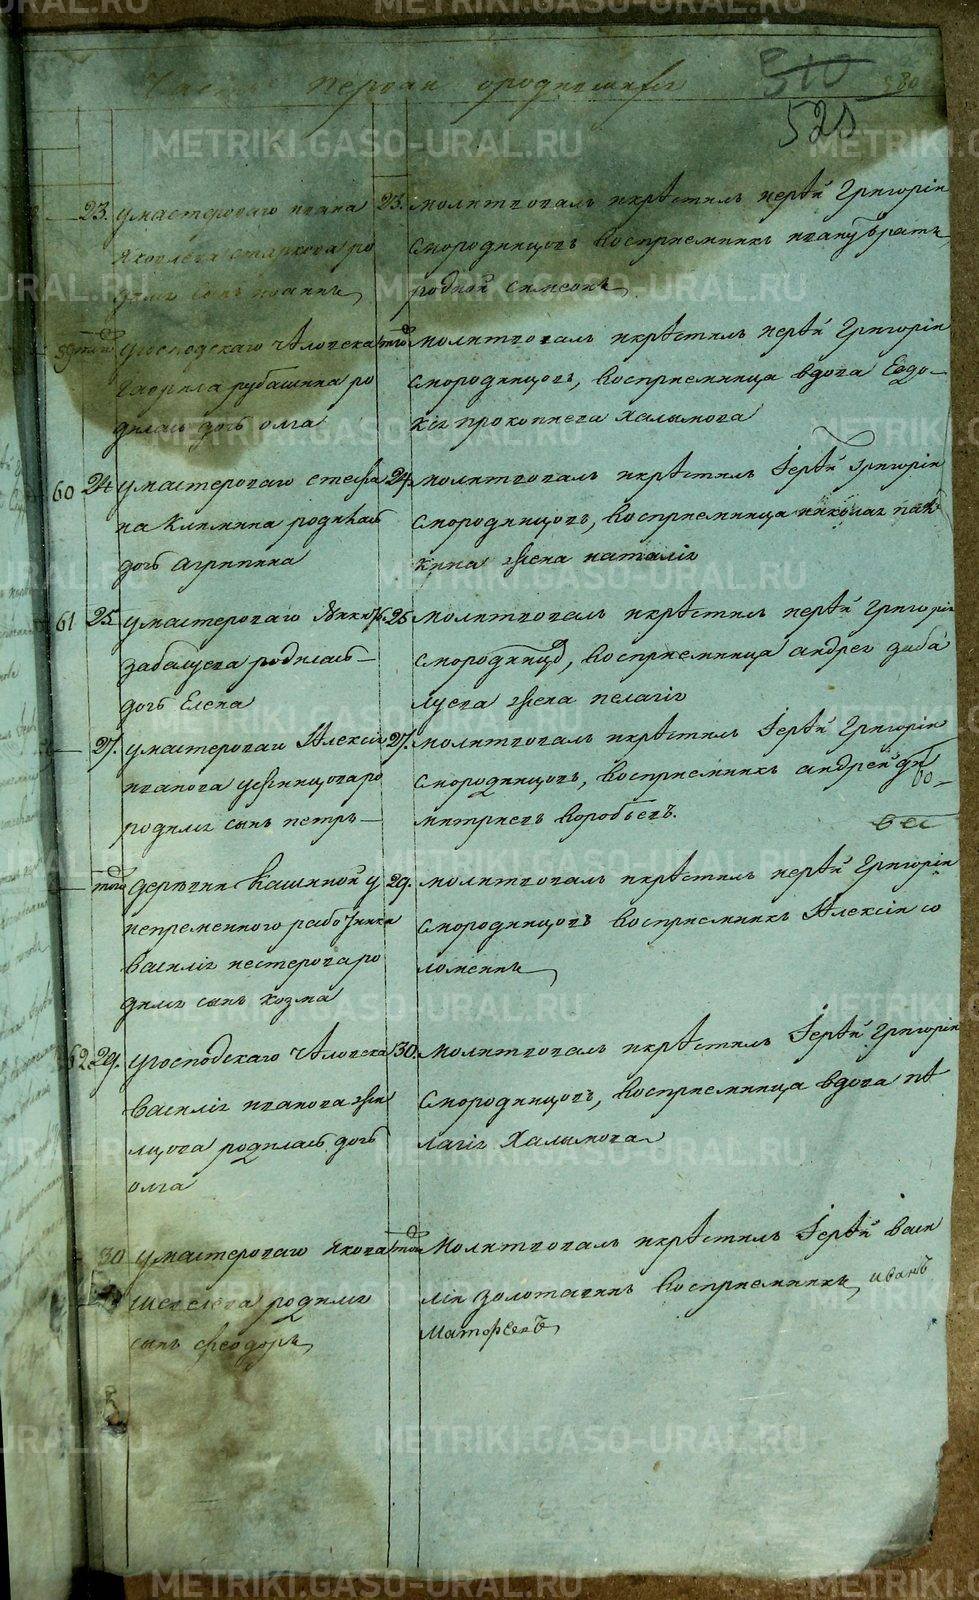 Часть первая ородившихся
510
520
80
23. умастероваго ивана
Яковлева старкова ро
дился сынъ иоаннъ
23. молитвовалъ икрѣстилъ иерѣй Григорий
Смородинцовъ восприемникъ ивану братъ
родной симеонъ
59 того умгосподскаго чѣловека
гаврила рубашина ро
дилась дочь олга
того молитвовалъ икрѣстилъ иерѣй Григорий
смородинцовъ, восприемница вдова Евдо-
кия прокопиева Халымова
60 24 умастероваго стефа
на Климина родилась
дочь агрипина
24. молитвовалъ икрѣстилъ Іерѣй григорий
Смородинцовъ, восприемница николая
кина жена наталия
61 25 умастероваго
забалуева родилась
дочь Елена
25 молитвовалъ икрѣстилъ иерѣй Григорий
Смородинцов, восприемница андрея заба
луева жена пелагия
27. умастероваго Алексия
иванова
родился сынъ петръ
27. молитвовалъ икрѣстилъ Іерѣй Григорий
смородинцовъ, восприемникъ андрей ди
митриевъ воробьевъ.
того деревни Кашиной у
непременного работника
василия нестерова ро
дился сынъ козма
29. молитвовалъ икрѣстилъ иерѣй Григорий
Смородинцовъ восприемникъ Алексий со
ломеинъ
62 29. угосподскаго чѣловека
василия иванова
родилась дочь
олга
30. молитвовалъ икрѣстилъ Іерѣй Григорий
Смородинцовъ, восприемница вдова пѣ
лагия Халымова
30 умастероваго якова
Шевелева родился
сынъ феодоръ
того молитвовалъ икрѣстилъ Іерѣй васи
лий золотавинъ восприемникъ иванъ
Матфеевъ
METRIKI.GASO-URAL.RU